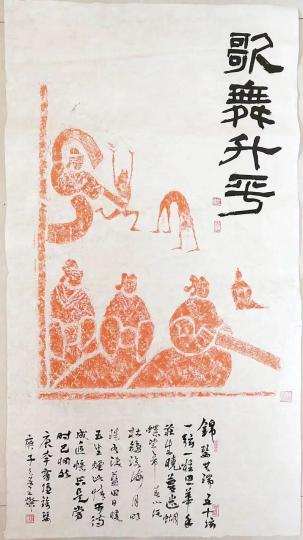 歌舞升平
錦瑟無端五十弦
一弦一柱思華年
莊生曉夢迷蝴
蝶望帝春心托
杜鵑滄海月明
珠有淚藍田日暖
玉生煙此情可待
成追憶只是當
時已惘然
唐李商隱錦瑟
庚子